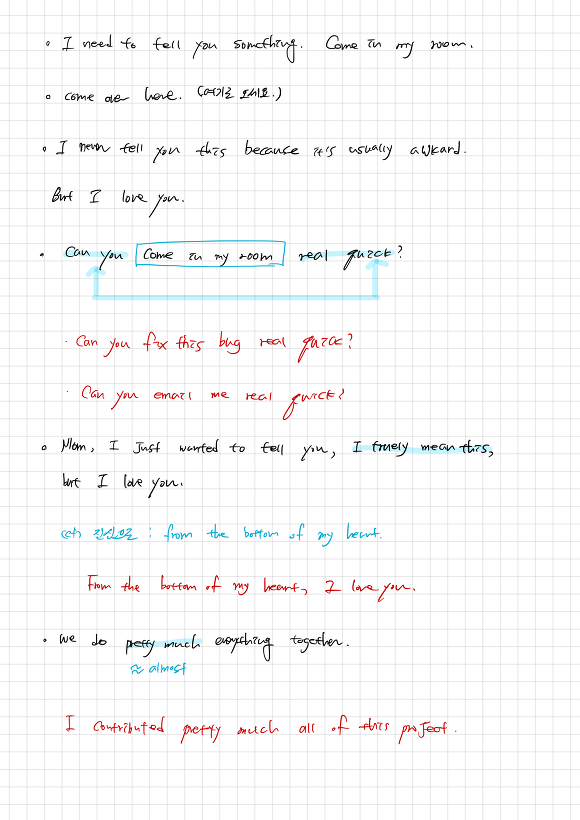 • I need to tell you something. Come in my room.
• come over here. (여기로 오세요.)
• I never tell you this because it's usually awkard.
But I love you.
• Can you Come in my room real quick?
· Can you fix this bug real quick?
· Can you email me real quick?
• Mom, I Just wanted to tell you, I truely mean this,
but I love you.
진심으로 : from the bottom of my heart.
From the bottom of my heart, I love you.
• We do pretty much everything together.
≈ almost
I contributed pretty much all of this project.